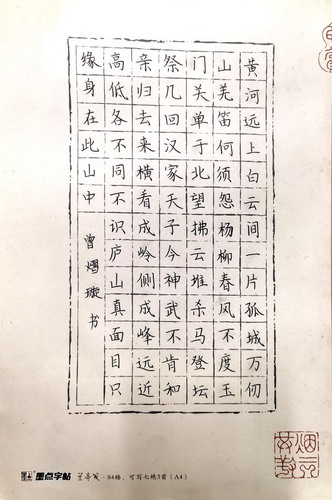 黄河远上白云间一片孤城万仞
山羌笛何须怨杨柳春风不度玉
门关单于北望拂云堆杀马登坛
祭几回汉家天子今神武不肯和
亲归去来横看成岭侧成峰远近
高低各不同不识庐山真面目只
缘身在此山中
曾熠璇书
墨点字帖 · 84格，可写七绝3首（A4）